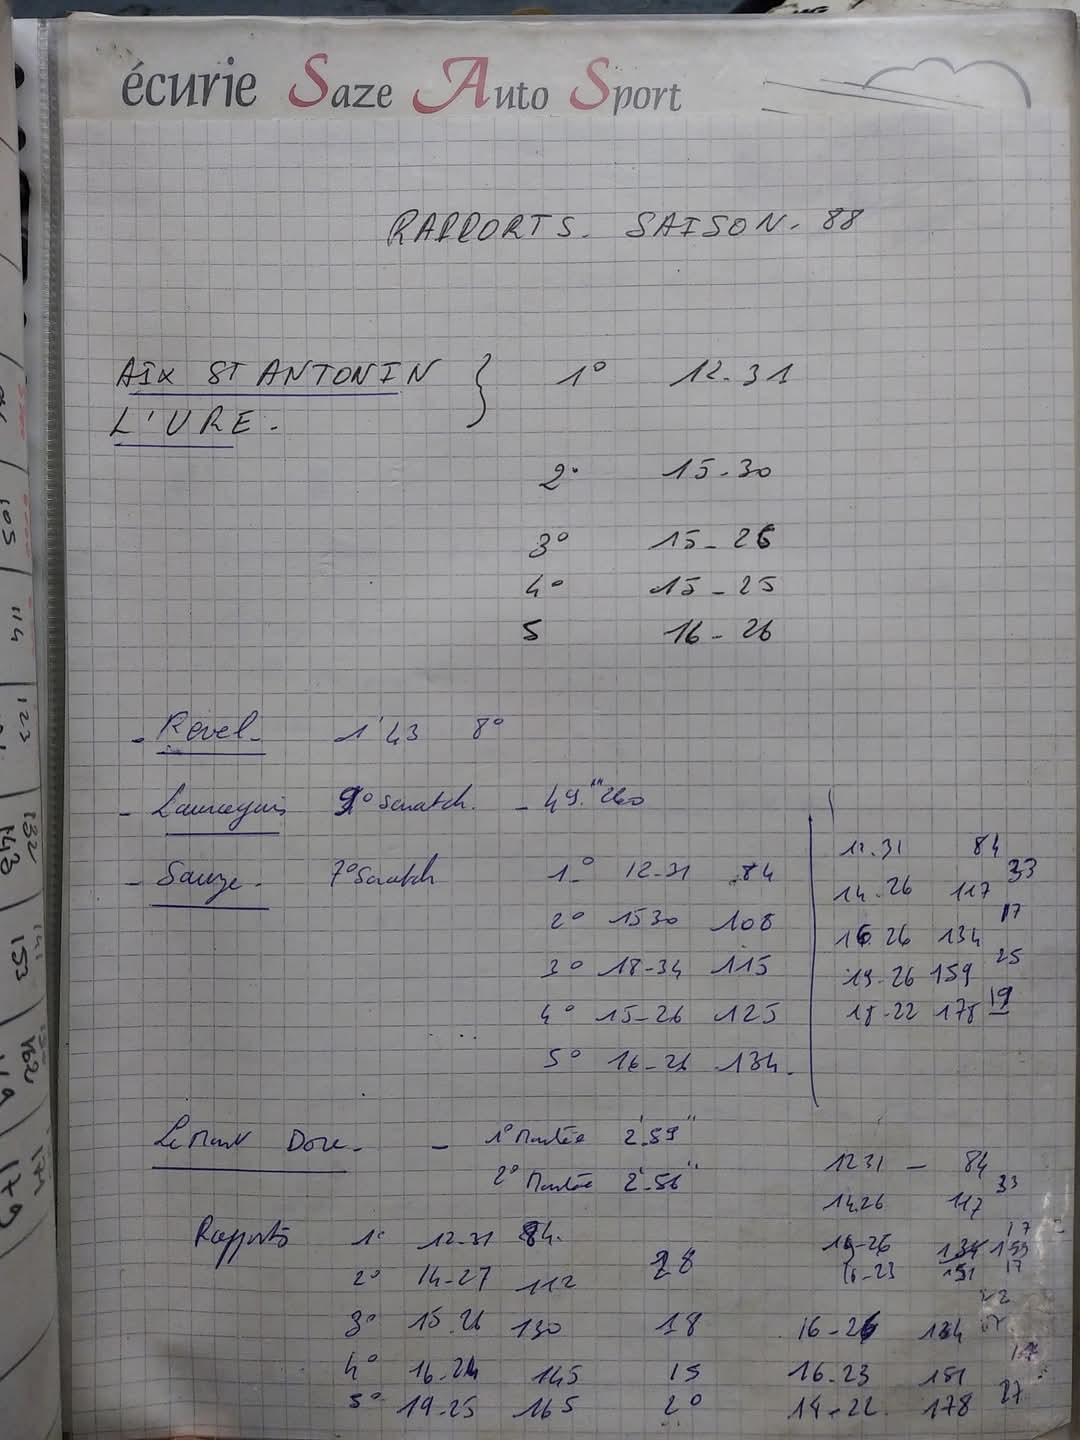 écurie Saze Auto Sport
RAPPORTS. SAISON. 88
AIX ST ANTONIN } 1° 12-31
L'URE.
2° 15-30
3° 15-26
4° 15-25
5 16-26
- Revel. 1'43 8°
- 9° Scratch. - 49."260
- Sauze. 7° Scratch 1° 12-31 84
2° 1530 108
3° 18-34 115
4° 15-26 125
5° 16-26 134.
12.31 84
14-26 117 33
16.26 134 17
19-26 159 25
18-22 178 19
Le Mont Dore. - 1° Montée 2'.59"
2° Montée 2'.56"
Rapports 1° 12-31 84.
2° 14-27 112 28
3° 15.26 130 18
4° 16.24 145 15
5° 19-25 165 20
1231 - 84
14.26 117 33
16-23 151 17
16-26 134
16-23 151
14-22 178 27
105
114
123
132
143
153
162
179